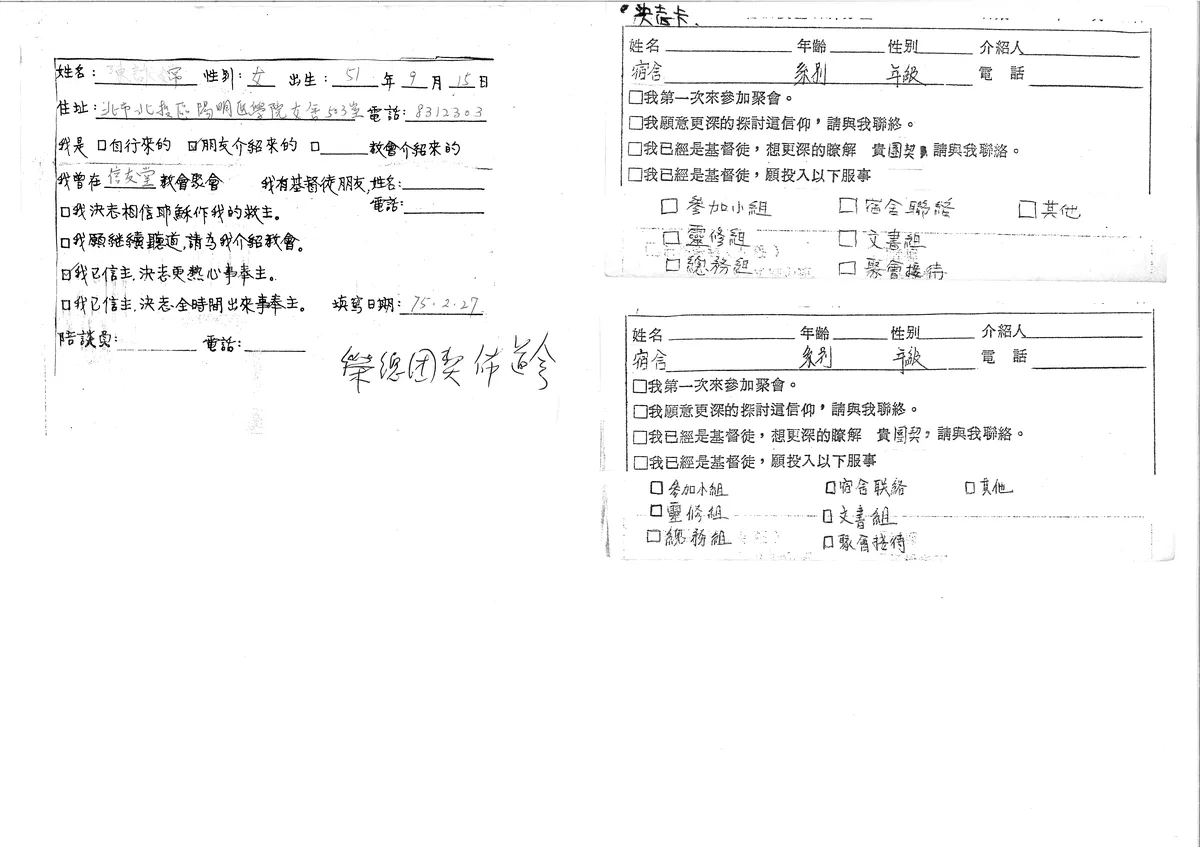 姓名： 性別：女 出生：51年9月15日
住址：北市北投區陽明醫學院女舍503室 電話：8312303
我是 □自行來的 ☑朋友介紹來的 □____教會介紹來的
我曾在信友堂教會聚會 我有基督徒朋友,姓名：
電話：
□我決志相信耶穌作我的救主。
□我願继續聽道,請為我介紹教會。
□我已信主,決志更熱心事奉主。
□我已信主,決志全時間出來事奉主。 填寫日期：75.2.27
陪談員： 電話：
榮總团契佈道会
決志卡.
姓名 年齡 性別 介紹人
宿舍 系別 年級 電話
□我第一次來參加聚會。
□我願意更深的探討這信仰，請與我聯絡。
□我已經是基督徒，想更深的瞭解 貴團契，請與我聯絡。
□我已經是基督徒，願投入以下服事
□參加小組 □宿舍聯絡 □其他
□靈修組 □文書組
□總務組 □聚會接待
姓名 年齡 性別 介紹人
宿舍 系別 年級 電話
□我第一次來參加聚會。
□我願意更深的探討這信仰，請與我聯絡。
□我已經是基督徒，想更深的瞭解 貴團契，請與我聯絡。
□我已經是基督徒，願投入以下服事
□參加小組 □宿舍联絡 □其他
□靈修組 □文書組
□總務組 □聚會接待